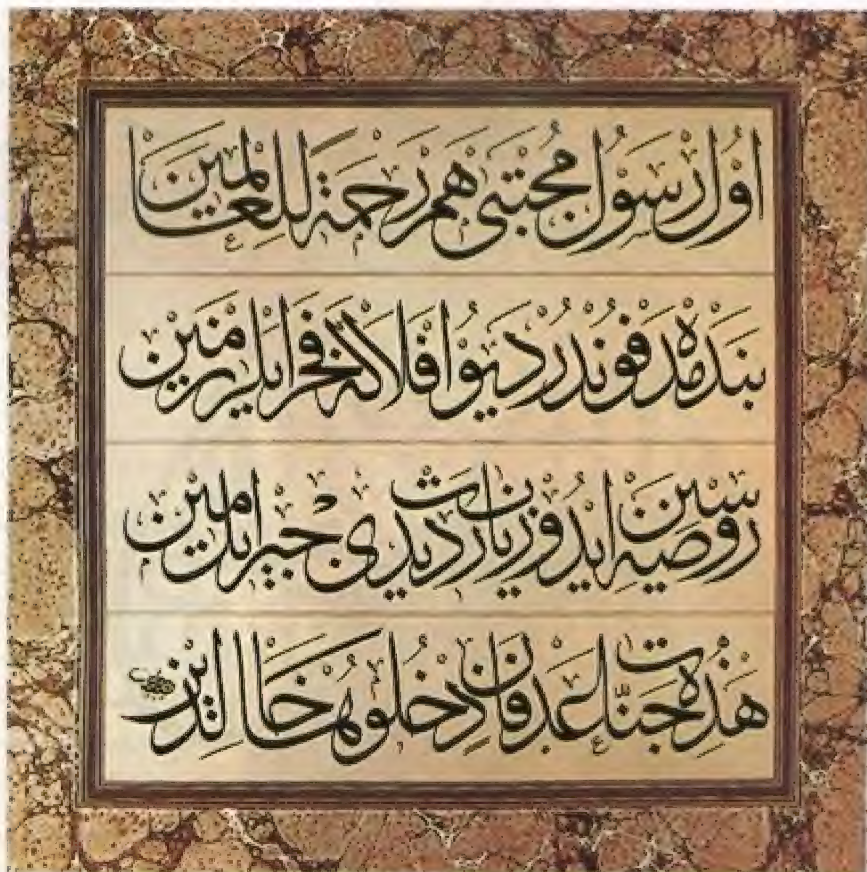 اول رسول مجتبى هم رحمة للعالمين
بنده مدفوندر ديو افلاكه فخر ايلر زمين
روضه سين ايدوب زيارت ديدى جبرايل امين
هذه جنات عدن فادخلوها خالدين